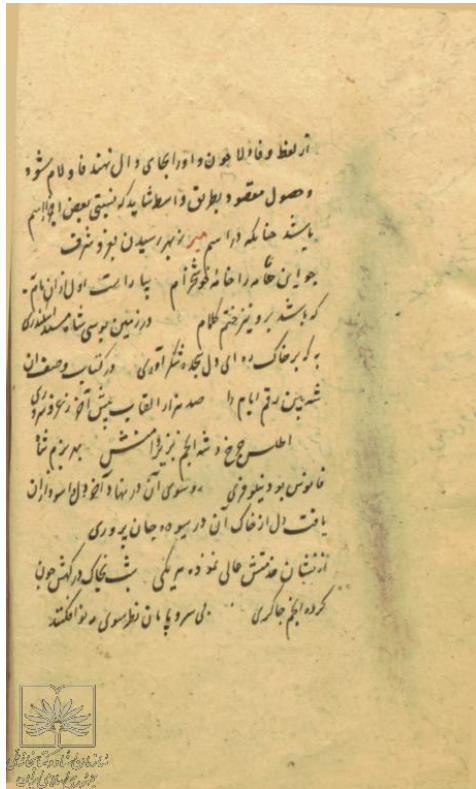 از لفظ وفا لا چون واو را بجای دال نهند فا و لام شود
و حصول مقصود بطریق واسطه شاید که نسبتی بعض اجزا اسم
باشد چنانکه در اسم میر ز بهر رسیدن بعز و شرف
چو این خامه را خانه خوشخرام بیا راست اول از آن نام
که باشد برو نیز ختم کلام در زمین بوسی شاه مسند اسکندری
به که بر خاک ره ای دل سجده شکر آوری در کتاب وصف ان
شه بین رقم ایام را صد هزار القاب پیش آخر
اطلس چرخ و شه انجم بزیر دامنش بهر بزم شاه
فانوس بود نیلوفری سوی آن در نهاد آخر دل اسود از ان
یافت دل از خاک آن در میوه جان پروری
از نشان خدمتش حالی نموده هر یکی شب بخاک درگهش چون
کرده انجم چاکری بی سر و پایان نظر سوی مه نو افکنند